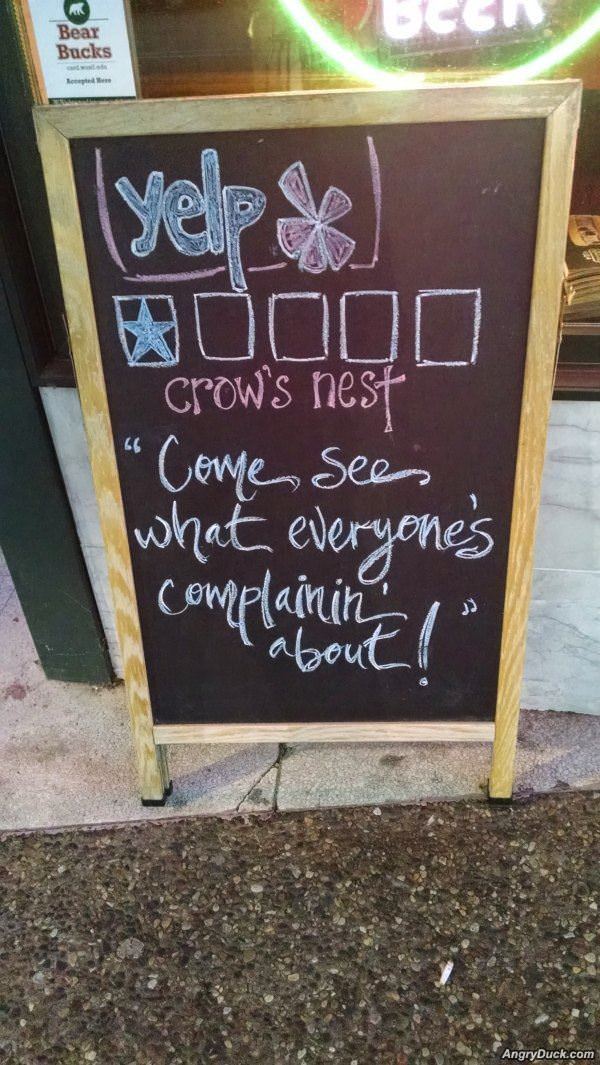 Bear
Bucks
Accepted Here
BEER
yelp
crow's nest
"Come see
what everyone's
complainin'
about!"
AngryDuck.com